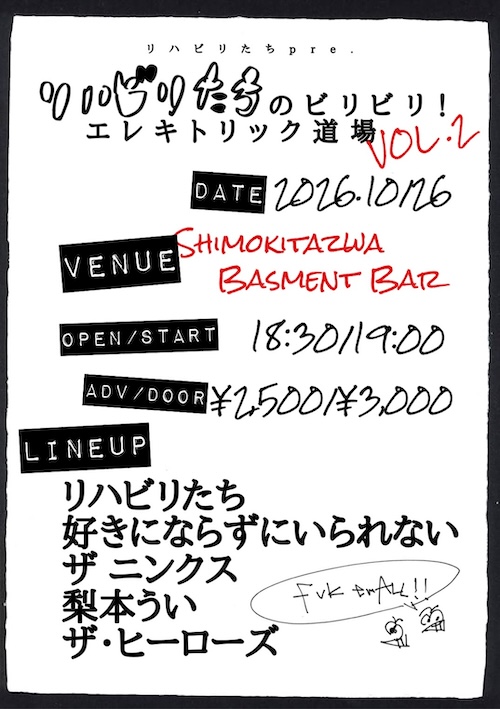 リハビリたちpre.
リハビリたちのビリビリ!
エレキトリック道場
VOL.2
DATE 2026.10/26
VENUE SHIMOKITAZWA
BASMENT BAR
OPEN/START 18:30/19:00
ADV/DOOR ¥2,500/¥3,000
LINEUP
リハビリたち
好きにならずにいられない
ザ ニンクス
梨本うい
ザ・ヒーローズ
FUK EmALL!!